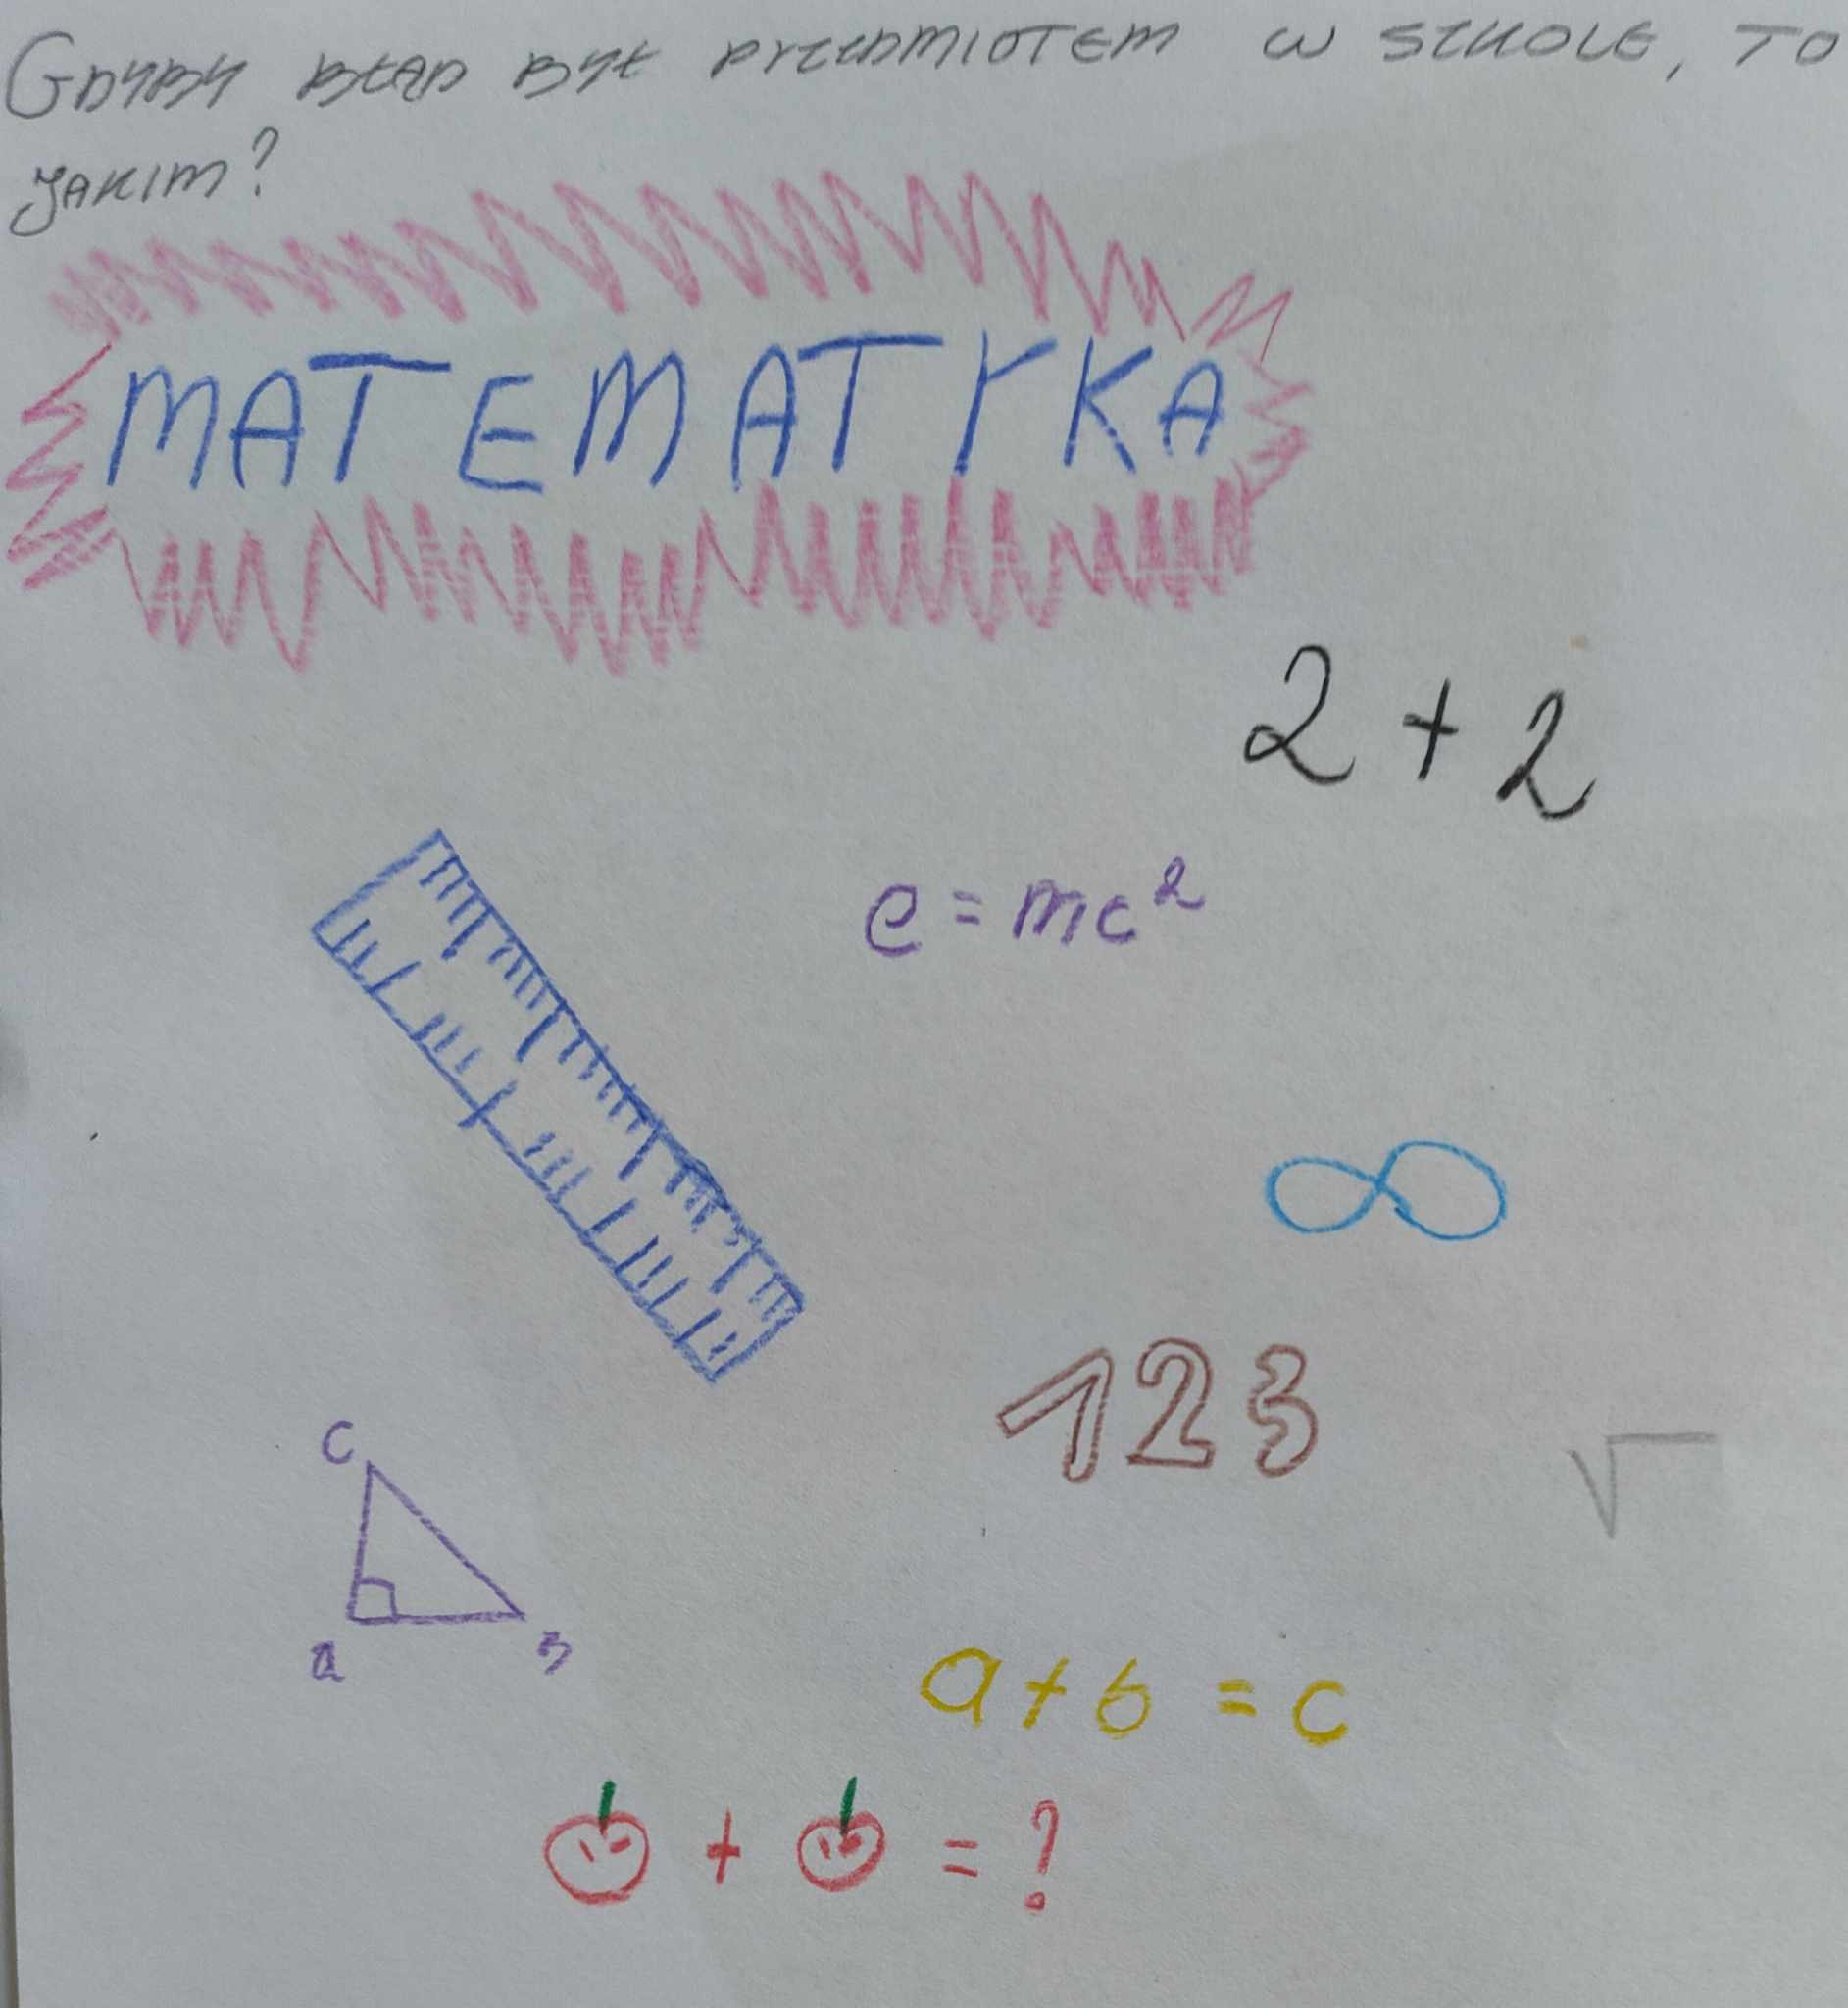 GDYBY BŁĄD BYŁ PRZEDMIOTEM W SZKOLE, TO
JAKIM?
MATEMATYKA
2+2
e=mc²
∞
123
√
C
a B
a+b=c
+ = ?